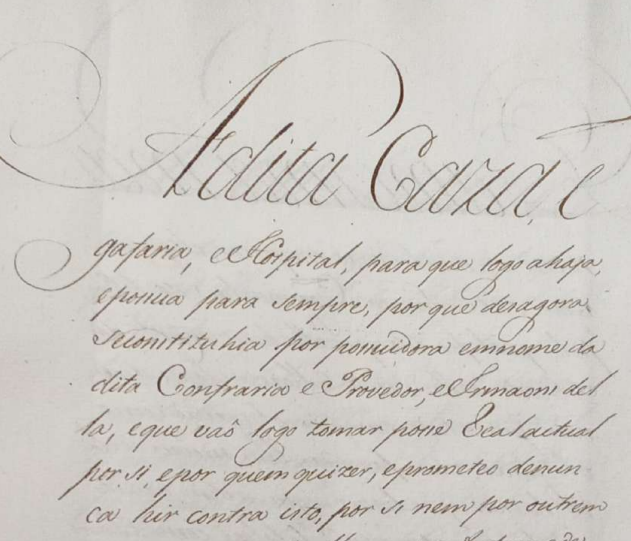 Adita Caza, e
gafaria, e Hospital, para que logo ahaja,
eposua para sempre, por que desagora
seconstituhia por posuidora emnome da
dita Confraria e Provedor, e Irmaons del
la, eque vaõ logo tomar posse Real actual
por si, epor quem quizer, eprometeo denun
ca hir contra isto, por si nem por outrem